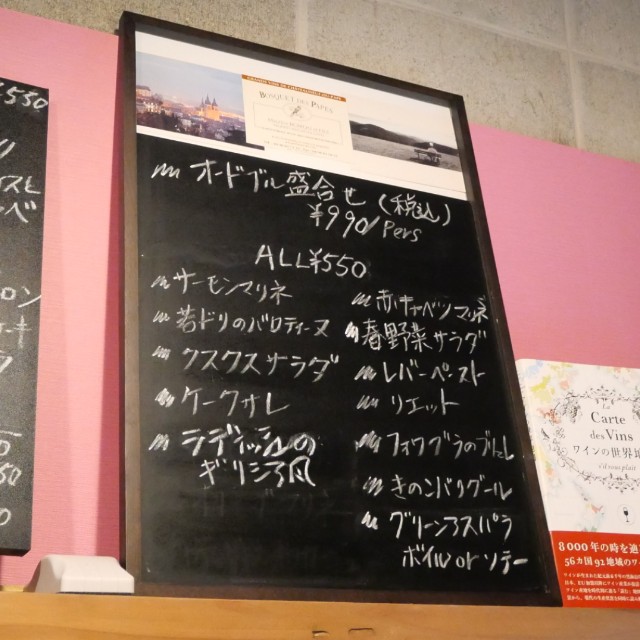 ¥530
BOSQUET DES PAPES
オードブル盛合せ(税込)
¥990/Pers
ALL¥550
サーモンマリネ
若ドリのバロティーヌ
クスクスサラダ
ケークサレ
ラディッシュの
ギリシア風
赤キャベツマリネ
春野菜サラダ
レバーペースト
リエット
フォワグラのブリュレ
きのこバリグール
グリーンアスパラ
ボイル or ソテー
La
Carte
des Vins
ワインの世界地
s'il vous plaît
8000年の時を
56カ国 91地域のワ